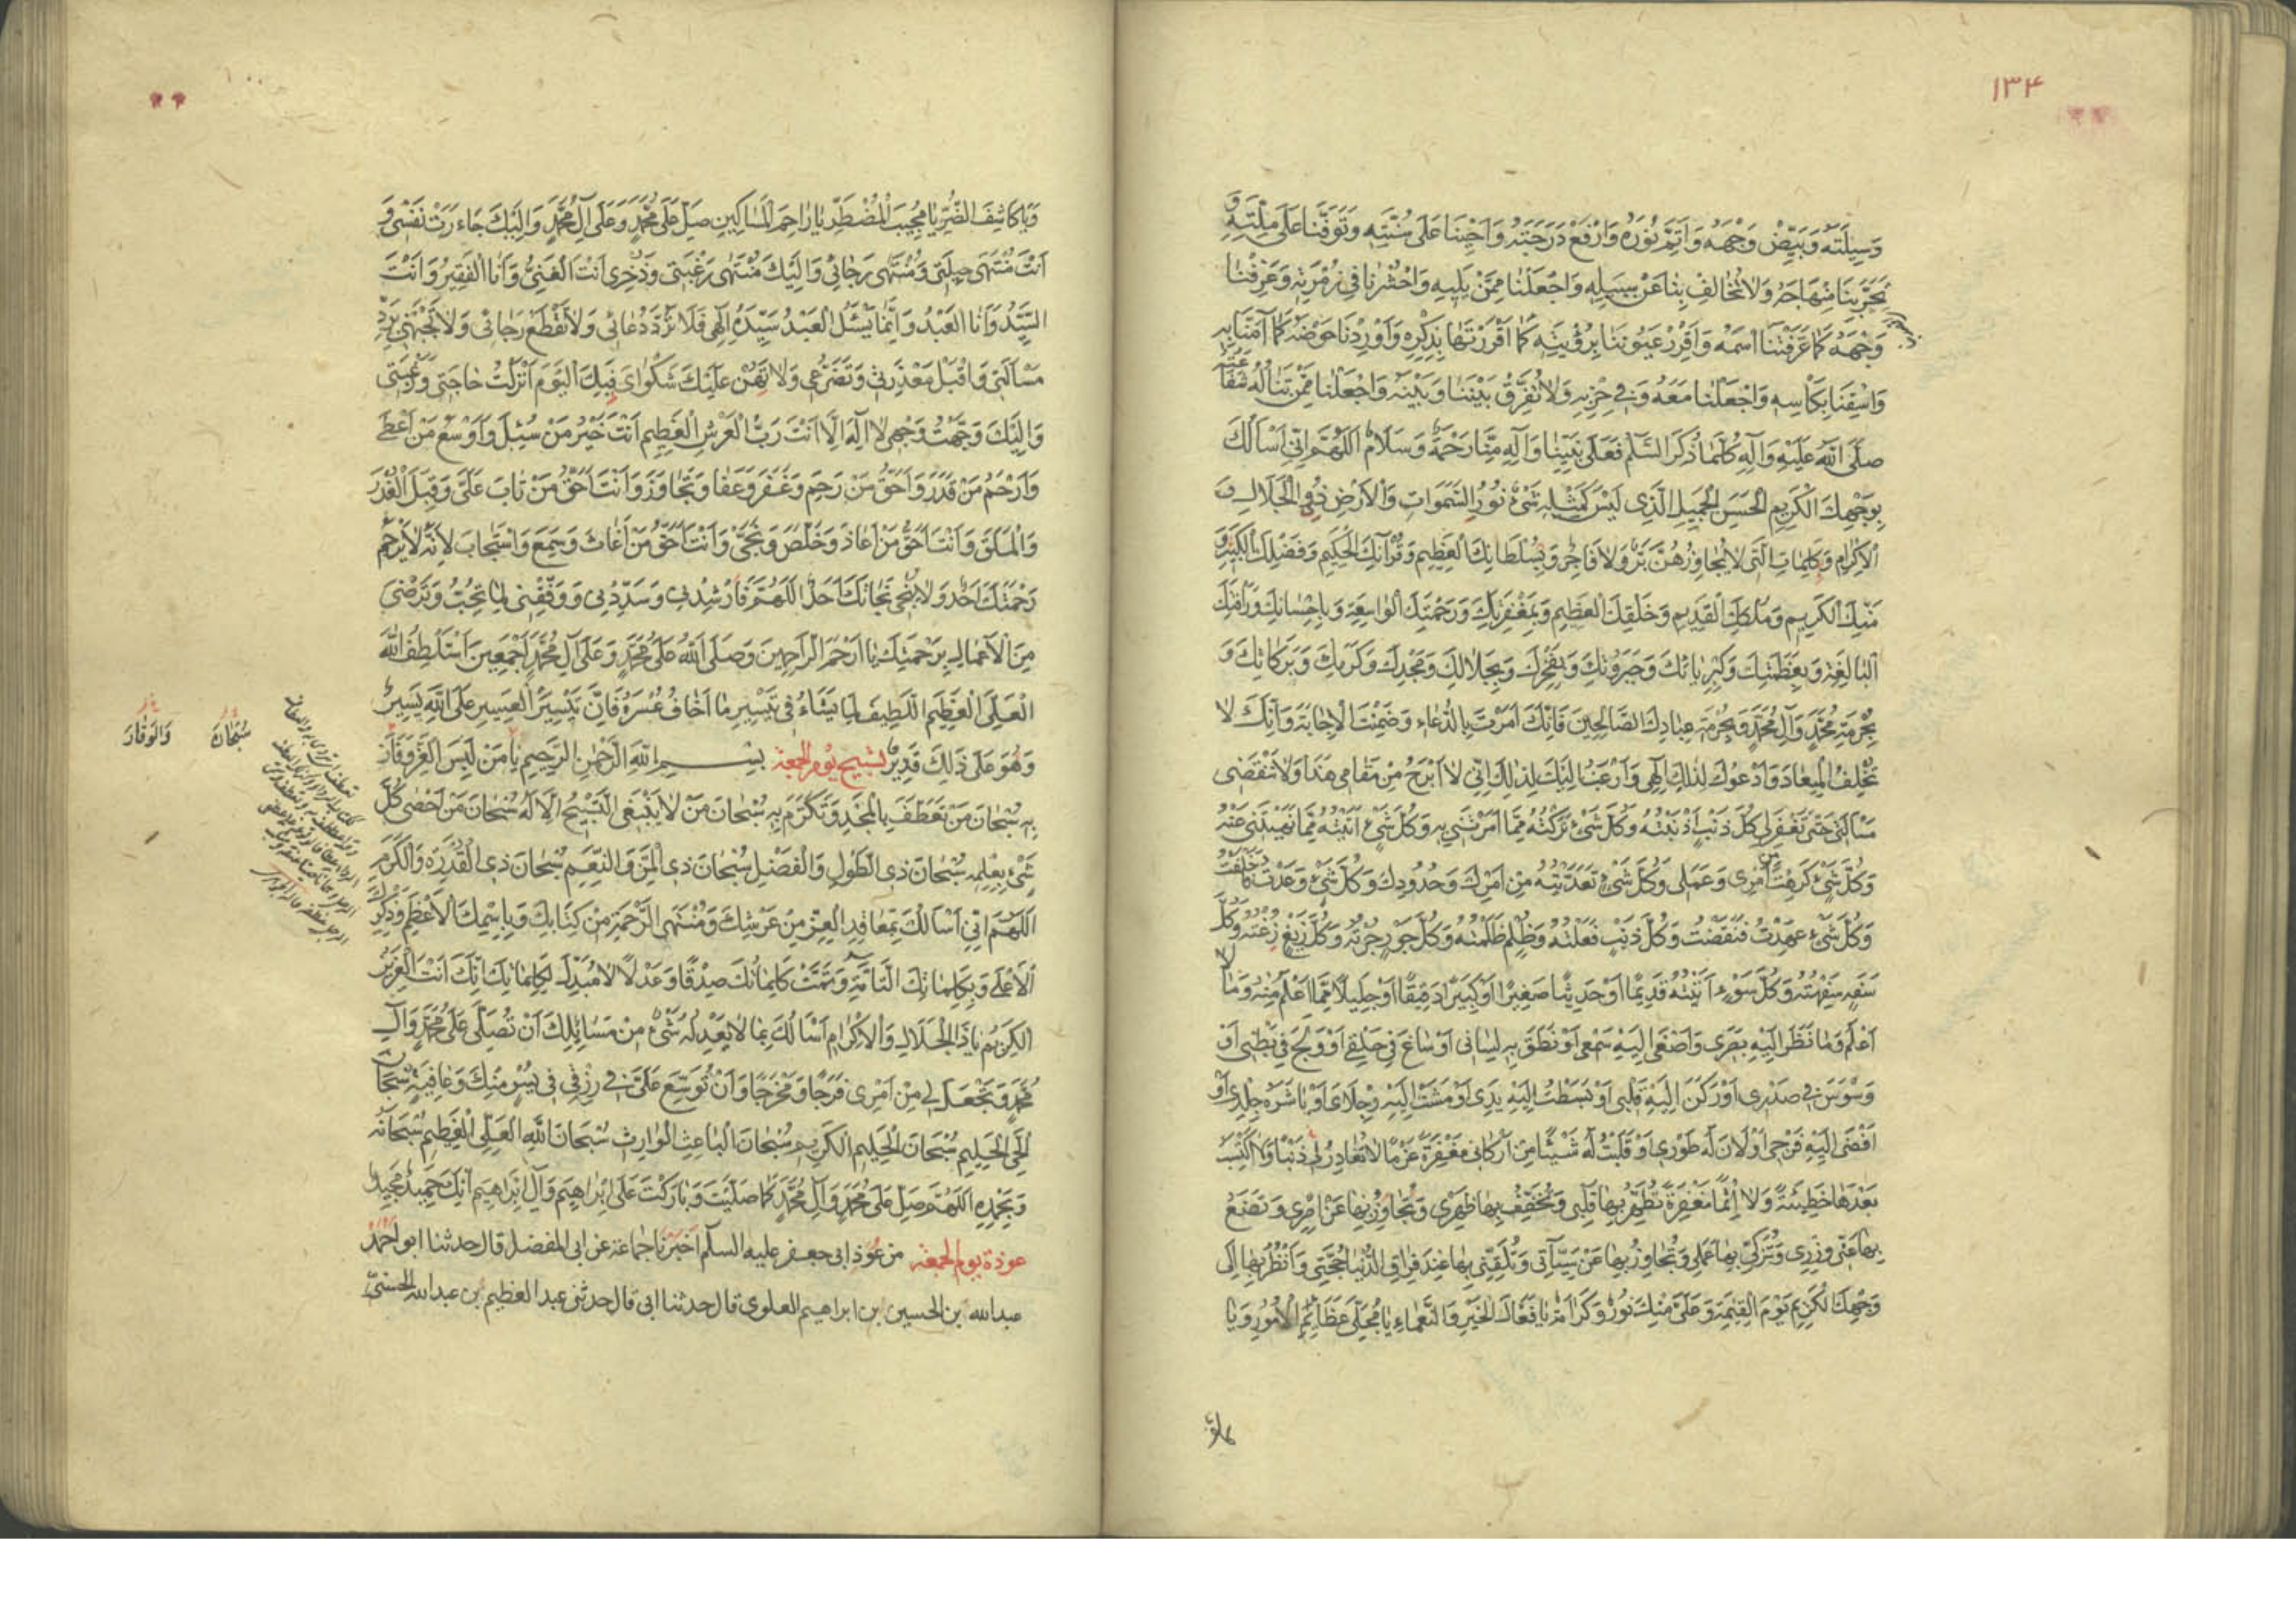 ١٣۴
وَسِيلَتَهُ وَبَيِّضْ وَجْهَهُ وَاَتِمَّ نُورَهُ وَارْفَعْ دَرَجَتَهُ وَاَحْيِنَا عَلَى سُنَّتِهِ وَتَوَفَّنَا عَلَى مِلَّتِهِ وَ
بَحَرِّبنَا مِنْهَاجَهُ وَلَا تُخَالِفْ بِنَا عَنْ سَبِيلِهِ وَاجْعَلْنَا مِمَّنْ يَلِيهِ وَاحْشُرْنَا فِي زُمْرَتِهِ وَعَرِّفْنَا
وَجْهَهُ كَمَا عَرَّفْتَنَا اسْمَهُ وَاَقْرِرْ عُيُونَنَا بِرُؤْيَتِهِ كَمَا اَقْرَرْتَهَا بِذِكْرِهِ وَاَوْرِدْنَا حَوْضَهُ كَمَا آمَنَّا بِهِ
وَاسْقِنَا بِكَاْسِهِ وَاجْعَلْنَا مَعَهُ وَفِي حِزْبِهِ وَلَا تُفَرِّقْ بَيْنَنَا وَبَيْنَهُ وَاجْعَلْنَا مِمَّنْ تَنَالُهُ شَفَا
صَلَّى اللّٰهُ عَلَيْهِ وَآلِهِ كُلَّمَا ذُكِرَ السَّلَامُ فَعَلَى نَبِيِّنَا وَآلِهِ مِنَّا رَحْمَةٌ وَسَلَامٌ اَللّٰهُمَّ اِنِّي اَسْاَلُكَ
بِوَجْهِكَ الْكَرِيمِ الْحَسَنِ الْجَمِيلِ الَّذِي لَيْسَ كَمِثْلِهِ شَيْءٌ نُورِ السَّمٰوَاتِ وَالْاَرْضِ ذِي الْجَلَالِ وَ
الْاِكْرَامِ وَكَلِمَاتِكَ الَّتِي لَا يُجَاوِزُهُنَّ بَرٌّ وَلَا فَاجِرٌ وَبِسُلْطَانِكَ الْعَظِيمِ وَقُرْآنِكَ الْحَكِيمِ وَفَضْلِكَ الْكَبِيرِ وَ
مَنِّكَ الْكَرِيمِ وَمُلْكِكَ الْقَدِيمِ وَخَلْقِكَ الْعَظِيمِ وَبِمَغْفِرَتِكَ وَرَحْمَتِكَ الْوَاسِعَةِ وَبِاِحْسَانِكَ وَرَاْفَتِكَ
الْبَالِغَةِ وَبِعَظَمَتِكَ وَكِبْرِيَائِكَ وَجَبَرُوتِكَ وَبِفَخْرِكَ وَبِجَلَالِكَ وَمَجْدِكَ وَكَرَمِكَ وَبَرَكَاتِكَ وَ
بِحُرْمَةِ مُحَمَّدٍ وَآلِ مُحَمَّدٍ وَبِحُرْمَةِ عِبَادِكَ الصَّالِحِينَ فَاِنَّكَ اَمَرْتَ بِالدُّعَاءِ وَضَمِنْتَ الْاِجَابَةَ وَاِنَّكَ لَا
تُخْلِفُ الْمِيعَادَ وَاَدْعُوكَ لِذٰلِكَ اِلٰهِي وَاَرْغَبُ اِلَيْكَ لِذٰلِكَ اِنِّي لَا اَبْرَحُ مِنْ مَقَامِي هٰذَا وَلَا تَنْقَضِي
مَسْاَلَتِي حَتَّى تَغْفِرَ لِي كُلَّ ذَنْبٍ اَذْنَبْتُهُ وَكُلَّ شَيْءٍ تَرَكْتُهُ مِمَّا اَمَرْتَنِي بِهِ وَكُلَّ شَيْءٍ اَتَيْتُهُ مِمَّا نَهَيْتَنِي عَنْهُ
وَكُلَّ شَيْءٍ كَرِهْتَ مِنْ اَمْرِي وَعَمَلِي وَكُلَّ شَيْءٍ تَعَدَّيْتُهُ مِنْ اَمْرِكَ وَحُدُودِكَ وَكُلَّ شَيْءٍ وَعَدْتُ فَاَخْلَفْتُ
وَكُلَّ شَيْءٍ عَهِدْتُ فَنَقَضْتُ وَكُلَّ ذَنْبٍ فَعَلْتُهُ وَظُلْمٍ ظَلَمْتُهُ وَكُلَّ جَوْرٍ جُرْتُهُ وَكُلَّ زَيْغٍ زِغْتُهُ وَكُلَّ
سَفَهٍ سَفِهْتُهُ وَكُلَّ سُوءٍ اَتَيْتُهُ قَدِيمًا اَوْ حَدِيثًا صَغِيرًا اَوْ كَبِيرًا دَقِيقًا اَوْ جَلِيلًا مِمَّا اَعْلَمُ مِنْهُ وَمَا لَا
اَعْلَمُ وَمَا نَظَرَ اِلَيْهِ بَصَرِي وَاَصْغَى اِلَيْهِ سَمْعِي اَوْ نَطَقَ بِهِ لِسَانِي اَوْ سَاغَ فِي حَلْقِي اَوْ وَلَجَ فِي بَطْنِي اَوْ
وَسْوَسَ فِي صَدْرِي اَوْ رَكَنَ اِلَيْهِ قَلْبِي اَوْ بَسَطْتُ اِلَيْهِ يَدِي اَوْ مَشَتْ اِلَيْهِ رِجْلَايَ اَوْ بَاشَرَهُ جِلْدِي اَوْ
اَفْضَى اِلَيْهِ فَرْجِي اَوْ لَانَ لَهُ طَوْرِي اَوْ قَلَبْتُ لَهُ شَيْئًا مِنْ اَرْكَانِي مَغْفِرَةً عَزْمًا لَا تُغَادِرُ لِي ذَنْبًا وَلَا اَكْتَسِبُ
بَعْدَهَا خَطِيئَةً وَلَا اِثْمًا مَغْفِرَةً تُطَهِّرُ بِهَا قَلْبِي وَتُخَفِّفُ بِهَا ظَهْرِي وَتُجَاوِزُ بِهَا عَنْ اِصْرِي وَتَضَعُ
بِهَا عَنِّي وِزْرِي وَتُزَكِّي بِهَا عَمَلِي وَتُجَاوِزُ بِهَا عَنْ سَيِّآتِي وَتُلَقِّنِّي بِهَا عِنْدَ فِرَاقِ الدُّنْيَا حُجَّتِي وَاَنْظُرُ بِهَا اِلَى
وَجْهِكَ الْكَرِيمِ يَوْمَ الْقِيٰمَةِ وَعَلَيَّ مِنْكَ نُورٌ وَكَرَامَةٌ يَا فَعَّالَ الْخَيْرِ وَالنَّعْمَاءِ يَا مُجَلِّيَ عَظَائِمِ الْاُمُورِ وَيَا
وَيَا كَاشِفَ الضُّرِّ يَا مُجِيبَ الْمُضْطَرِّ يَا رَاحِمَ الْمَسَاكِينِ صَلِّ عَلَى مُحَمَّدٍ وَعَلَى آلِ مُحَمَّدٍ وَاِلَيْكَ جَاءَرَتْ نَفْسِي وَ
اَنْتَ مُنْتَهَى حِيلَتِي وَمُنْتَهَى رَجَائِي وَاِلَيْكَ مُنْتَهَى رَغْبَتِي وَذُخْرِي اَنْتَ الْغَنِيُّ وَاَنَا الْفَقِيرُ وَاَنْتَ
السَّيِّدُ وَاَنَا الْعَبْدُ وَاِنَّمَا يَسْئَلُ الْعَبْدُ سَيِّدَهُ اِلٰهِي فَلَا تَرُدَّ دُعَائِي وَلَا تَقْطَعْ رَجَائِي وَلَا تَجْبَهْنِي بِرَدِّ
مَسْاَلَتِي وَاقْبَلْ مَعْذِرَتِي وَتَضَرُّعِي وَلَا تَهُنْ عَلَيْكَ شَكْوَايَ فَبِكَ الْيَوْمَ اَنْزَلْتُ حَاجَتِي وَرَغْبَتِي
وَاِلَيْكَ وَجَّهْتُ وَجْهِي لَا اِلٰهَ اِلَّا اَنْتَ رَبُّ الْعَرْشِ الْعَظِيمِ اَنْتَ خَيْرُ مَنْ سُئِلَ وَاَوْسَعُ مَنْ اَعْطَى
وَاَرْحَمُ مَنْ قَدَرَ وَاَحَقُّ مَنْ رَحِمَ وَغَفَرَ وَعَفَا وَتَجَاوَزَ وَاَنْتَ اَحَقُّ مَنْ تَابَ عَلَيَّ وَقَبِلَ الْعُذْرَ
وَالْمَلَقَ وَاَنْتَ اَحَقُّ مَنْ اَعَاذَ وَخَلَّصَ وَنَجَّى وَاَنْتَ اَحَقُّ مَنْ اَغَاثَ وَسَمِعَ وَاسْتَجَابَ لِاَنَّهُ لَا يَرْحَمُ
رَحْمَتَكَ اَحَدٌ وَلَا يُنْجِي نَجَاتَكَ اَحَدٌ اَللّٰهُمَّ فَاَرْشِدْنِي وَسَدِّدْنِي وَوَفِّقْنِي لِمَا تُحِبُّ وَتَرْضَى
مِنَ الْاَعْمَالِ بِرَحْمَتِكَ يَا اَرْحَمَ الرَّاحِمِينَ وَصَلَّى اللّٰهُ عَلَى مُحَمَّدٍ وَعَلَى آلِ مُحَمَّدٍ اَجْمَعِينَ اَسْتَلْطِفُ اللّٰهَ
الْعَلِيَّ الْعَظِيمَ اللَّطِيفَ لِمَا يَشَاءُ فِي تَيْسِيرِ مَا اَخَافُ عُسْرَهُ فَاِنَّ تَيْسِيرَ الْعَسِيرِ عَلَى اللّٰهِ يَسِيرٌ
وَهُوَ عَلَى ذٰلِكَ قَدِيرٌ تسبيح يوم الجمعة بِسْمِ اللّٰهِ الرَّحْمٰنِ الرَّحِيمِ يَا مَنْ لَبِسَ الْعِزَّ وَفَازَ
بِهِ سُبْحَانَ مَنْ تَعَطَّفَ بِالْمَجْدِ وَتَكَرَّمَ بِهِ سُبْحَانَ مَنْ لَا يَنْبَغِي التَّسْبِيحُ اِلَّا لَهُ سُبْحَانَ مَنْ اَحْصَى كُلَّ
شَيْءٍ بِعِلْمِهِ سُبْحَانَ ذِي الطَّوْلِ وَالْفَضْلِ سُبْحَانَ ذِي الْمَنِّ وَالنِّعَمِ سُبْحَانَ ذِي الْقُدْرَةِ وَالْكَرَمِ
اَللّٰهُمَّ اِنِّي اَسْاَلُكَ بِمَعَاقِدِ الْعِزِّ مِنْ عَرْشِكَ وَمُنْتَهَى الرَّحْمَةِ مِنْ كِتَابِكَ وَبِاسْمِكَ الْاَعْظَمِ وَذِكْرِكَ
الْاَعْلَى وَبِكَلِمَاتِكَ التَّامَّةِ وَتَمَّتْ كَلِمَاتُكَ صِدْقًا وَعَدْلًا لَا مُبَدِّلَ لِكَلِمَاتِكَ اِنَّكَ اَنْتَ الْعَزِيزُ
الْكَرِيمُ يَا ذَا الْجَلَالِ وَالْاِكْرَامِ اَسْاَلُكَ بِمَا لَا يَعْدِلُهُ شَيْءٌ مِنْ مَسَائِلِكَ اَنْ تُصَلِّيَ عَلَى مُحَمَّدٍ وَآلِ
مُحَمَّدٍ وَتَجْعَلَ لِي مِنْ اَمْرِي فَرَجًا وَمَخْرَجًا وَاَنْ تُوَسِّعَ عَلَيَّ فِي رِزْقِي فِي يُسْرٍ مِنْكَ وَعَافِيَةٍ سُبْحَانَ
الْحَيِّ الْحَلِيمِ سُبْحَانَ الْحَلِيمِ الْكَرِيمِ سُبْحَانَ الْبَاعِثِ الْوَارِثِ سُبْحَانَ اللّٰهِ الْعَلِيِّ الْعَظِيمِ سُبْحَانَهُ
وَبِحَمْدِهِ اَللّٰهُمَّ صَلِّ عَلَى مُحَمَّدٍ وَآلِ مُحَمَّدٍ كَمَا صَلَّيْتَ وَبَارَكْتَ عَلَى اِبْرَاهِيمَ وَآلِ اِبْرَاهِيمَ اِنَّكَ حَمِيدٌ مَجِيدٌ
عوذة يوم الجمعة من عُوَذِ ابي جعفر عليه السلام اَخْبَرَنَا جماعة عن ابي المفضل قال حدثنا ابو احمد
عبدالله بن الحسين بن ابراهيم العلوي قال حدثنا ابي قال حدثني عبد العظيم بن عبدالله الحسني
سُبْحَانَ
وَالْوَقَارَ